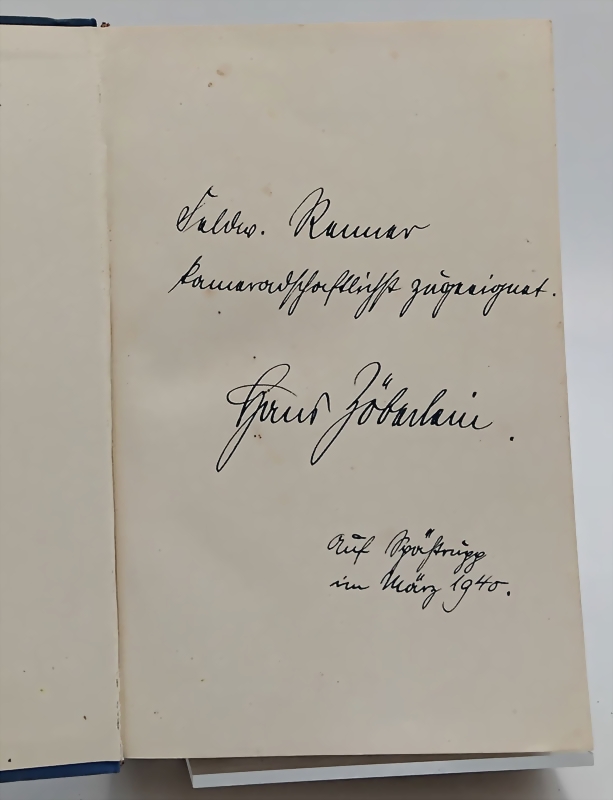 Feldw. Renner
kameradschaftlichst zugeeignet.
Hans Zöberlein.
Auf Spähtrupp
im März 1940.